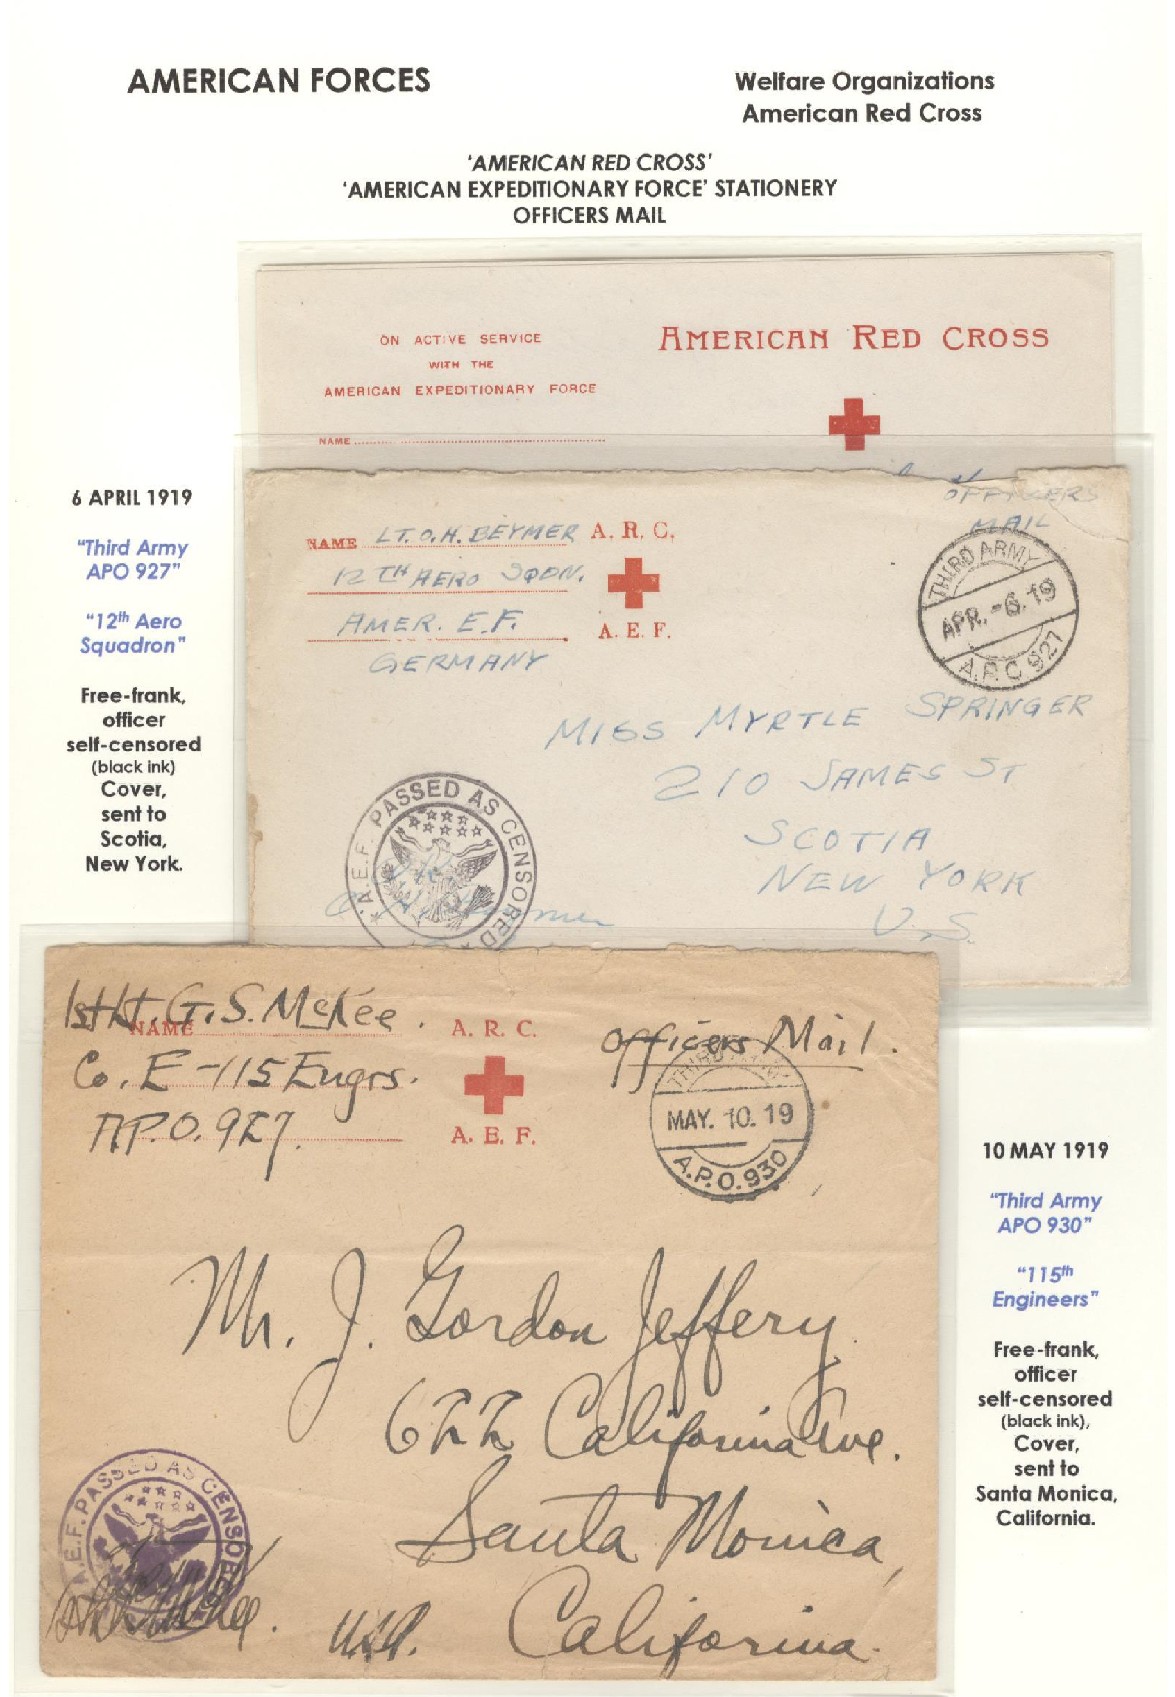 AMERICAN FORCES
Welfare Organizations
American Red Cross
'AMERICAN RED CROSS'
'AMERICAN EXPEDITIONARY FORCE' STATIONERY
OFFICERS MAIL
ON ACTIVE SERVICE
WITH THE
AMERICAN EXPEDITIONARY FORCE
NAME
AMERICAN RED CROSS
6 APRIL 1919
"Third Army
APO 927"
"12th Aero
Squadron"
Free-frank,
officer
self-censored
(black ink)
Cover,
sent to
Scotia,
New York.
OFFICERS
MAIL
NAME LT. O. H. BEYMER
12TH AERO SQDN.
AMER. E.F.
GERMANY
A. R. C.
A. E. F.
THIRD ARMY
APR. -6. 19
A.P.O 927
MISS MYRTLE SPRINGER
210 JAMES ST
SCOTIA
NEW YORK
U.S.
A.E.F. PASSED AS CENSORED
1st Lt. G. S. McKee.
NAME
Co. E-115 Engrs.
A.P.O. 927.
A. R. C.
A. E. F.
Officers Mail.
THIRD ARMY
MAY. 10. 19
A.P.O. 930
Mr. J. Gordon Jeffery
622 California Ave.
Santa Monica,
California.
U.S.A.
A.E.F. PASSED AS CENSORED
10 MAY 1919
"Third Army
APO 930"
"115th
Engineers"
Free-frank,
officer
self-censored
(black ink),
Cover,
sent to
Santa Monica,
California.